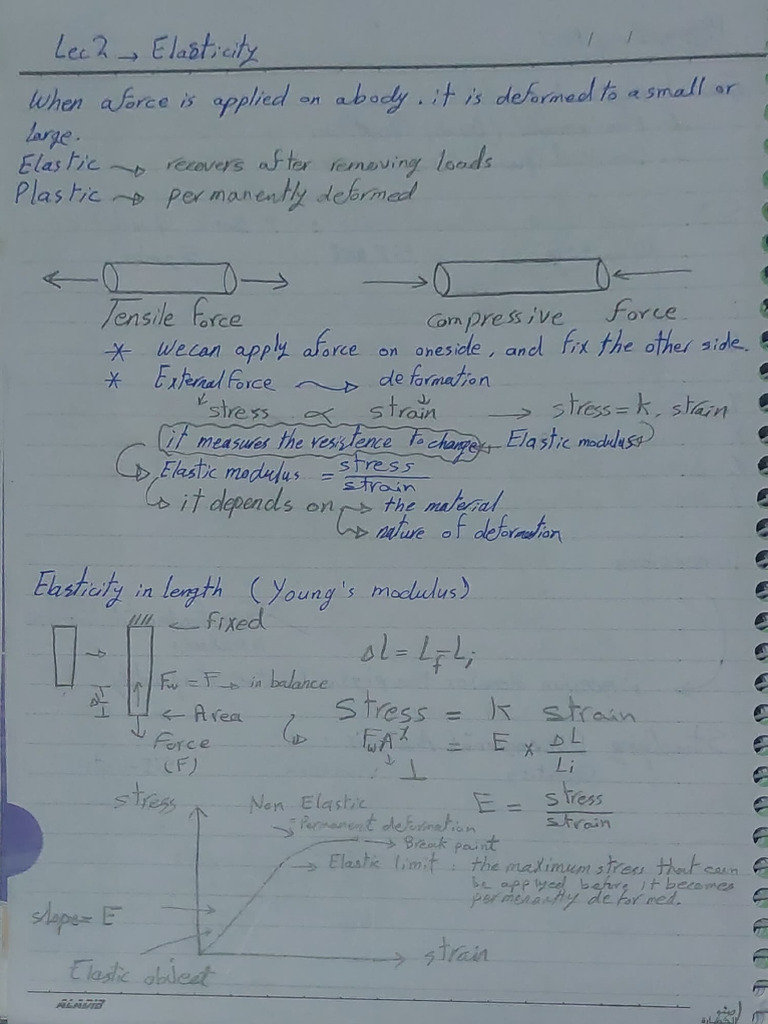 Lec2 → Elasticity
/ /
When aforce is applied on abody. it is deformed to a small or
large.
Elastic → recovers after removing loads
Plastic → permanently deformed
Tensile Force
compressive force
* Wecan apply aforce on oneside, and fix the other side.
* External force → deformation
stress ∝ strain → stress = k, strain
it measures the resistence to change Elastic modulus
Elastic modulus = stress / strain
it depends on → the material
→ nature of deformation
Elasticity in length (Young's modulus)
← fixed
Δl = Lf - Li
Fw = F → in balance
ΔL
← Area
Stress = K strain
Force
(F)
= E x ΔL / Li
⊥
E = stress / strain
stress
Non Elastic
→ Permanent deformation
→ Break point
→ Elastic limit : the maximum stress that can
be applyed before it becomes
permenantly deformed.
slope = E
→ strain
Elastic object
ALADIB